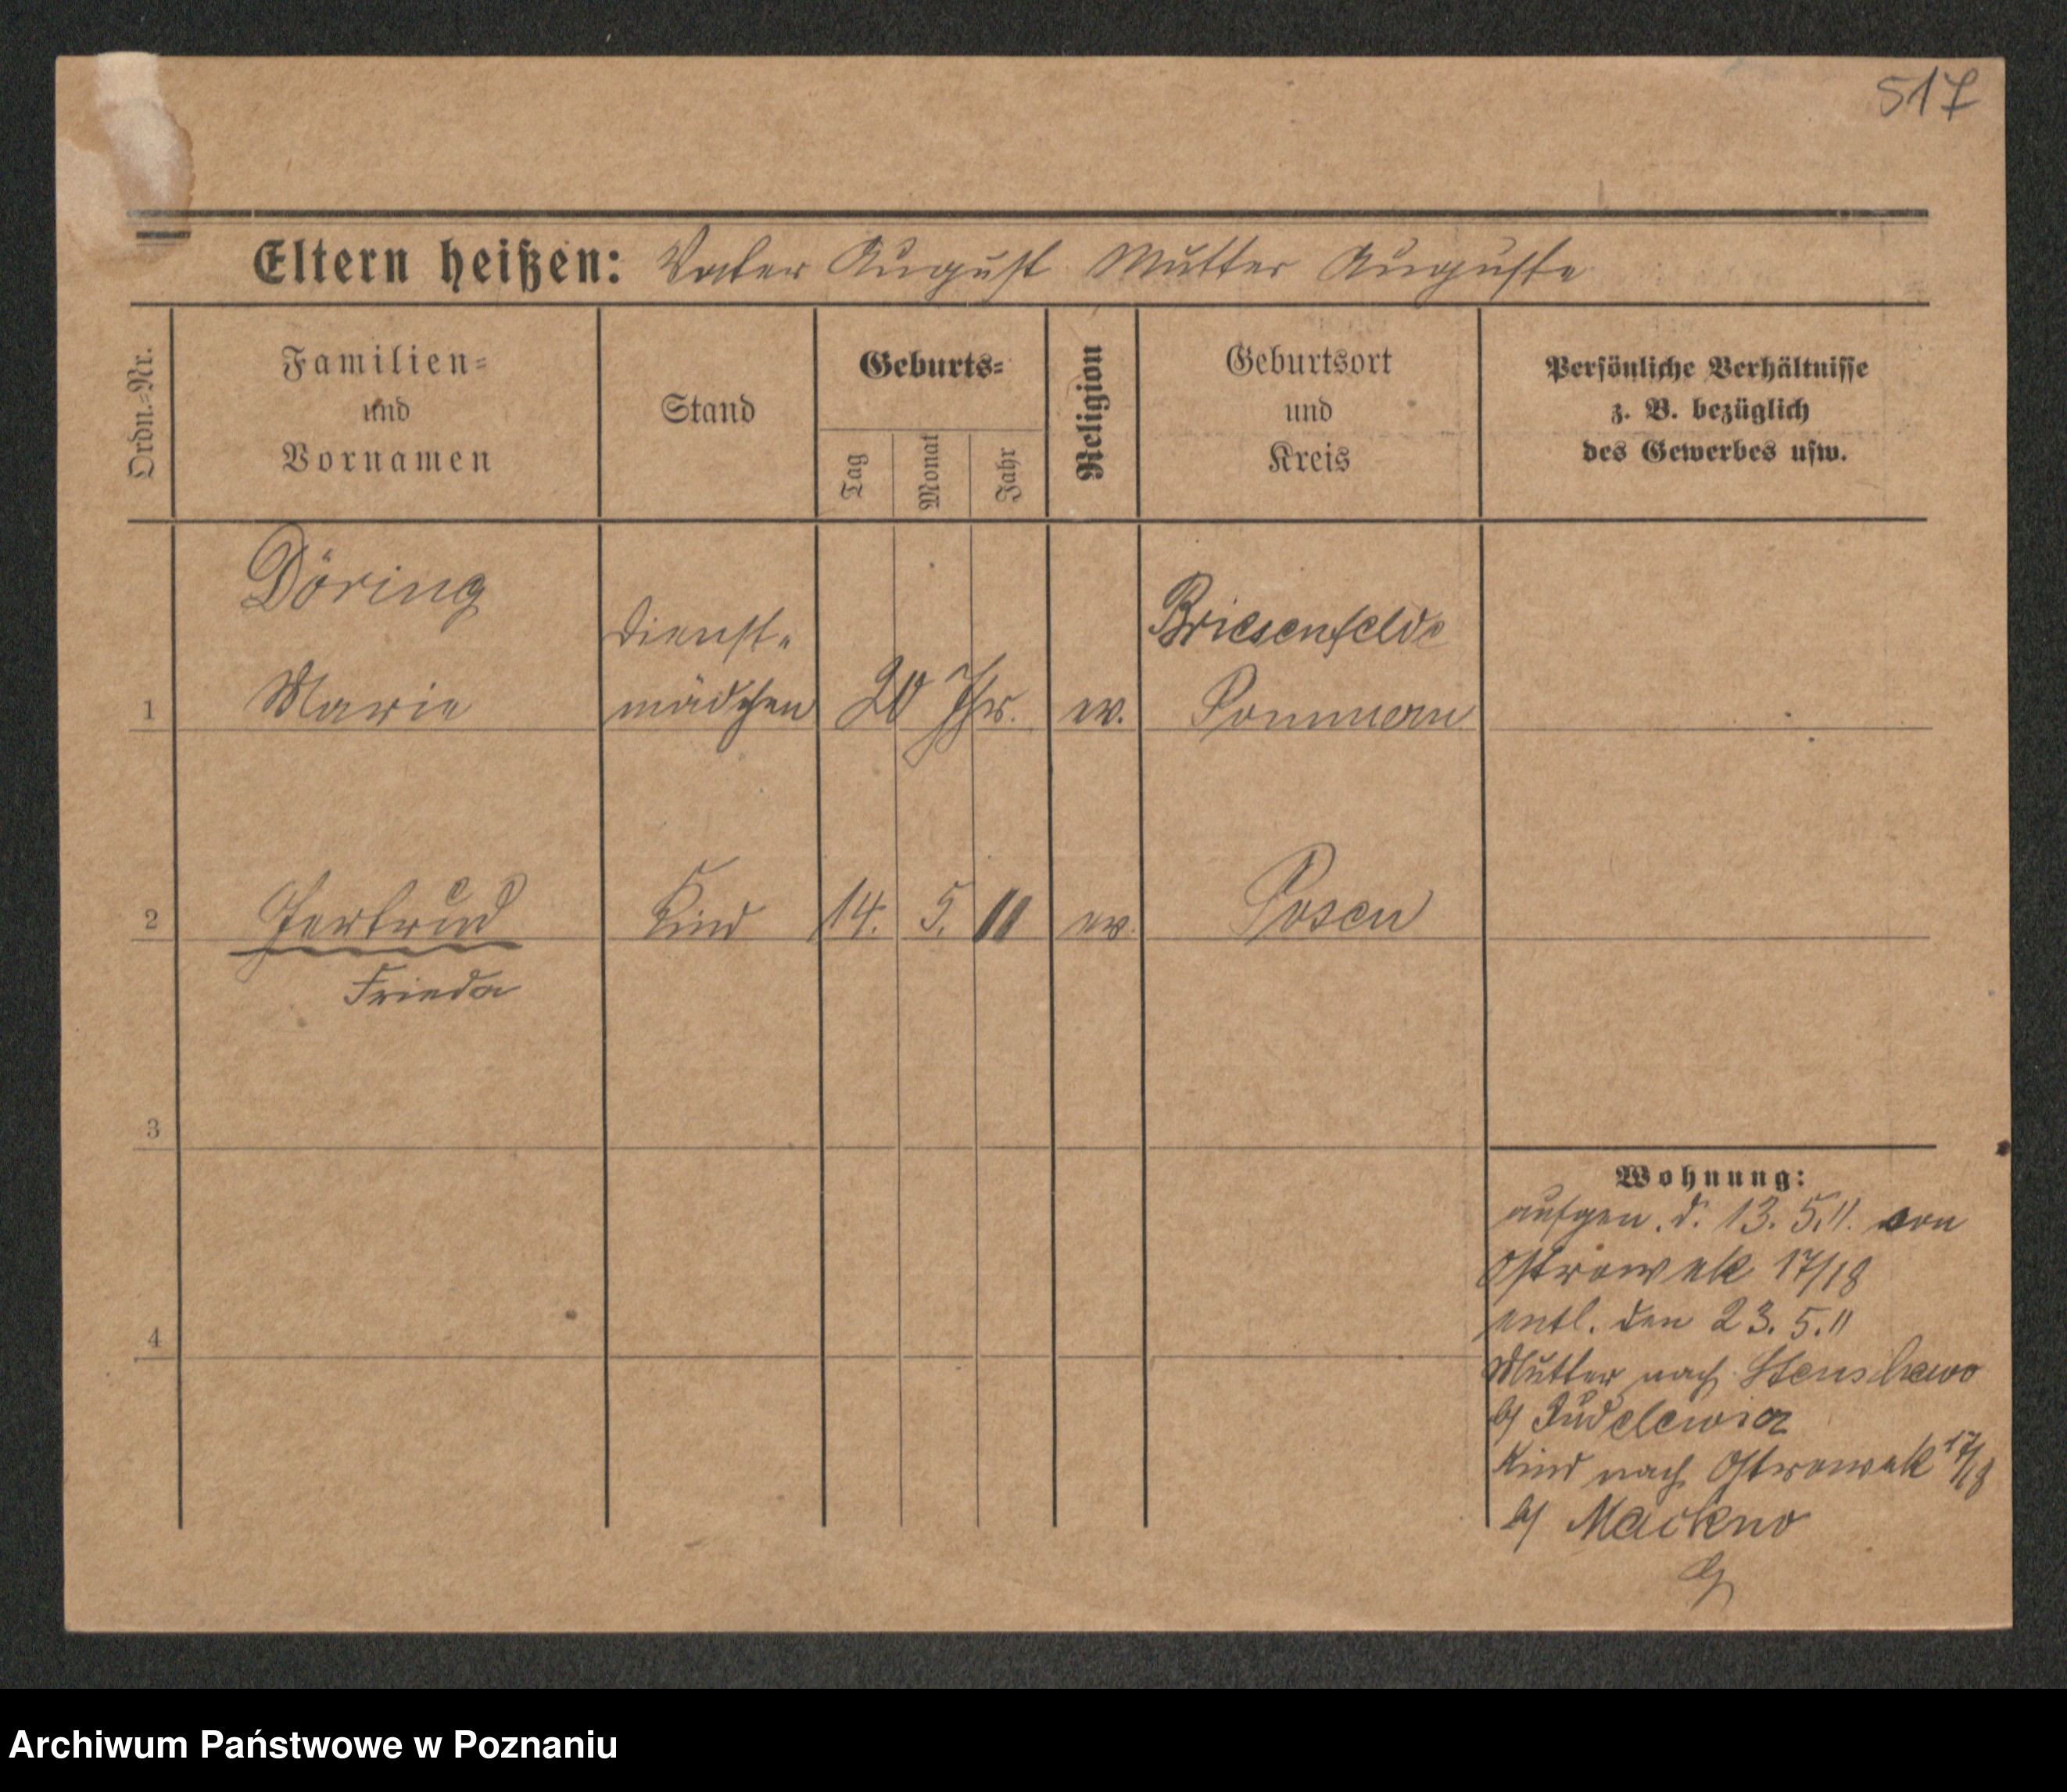 517
Eltern heißen: Vater August Mutter Auguste
Ordn.=Nr.
Familien=
und
Vornamen
Stand
Geburts=
Tag
Monat
Jahr
Religion
Geburtsort
und
Kreis
Persönliche Verhältnisse
z. B. bezüglich
des Gewerbes usw.
Döring
Dienst-
Briesenfelde
1 Marie mädchen 20 Jhr. ev. Pommern
2 Gertrud Kind 14. 5. 11 ev. Posen
Frieda
3
4
Wohnung:
aufgen. d. 13. 5. 11. von
Ostrowek 17/18
entl. den 23. 5. 11
Mutter nach Stenschewo
b/
Kind nach Ostrowek 17/18
b/ Mackno
Archiwum Państwowe w Poznaniu